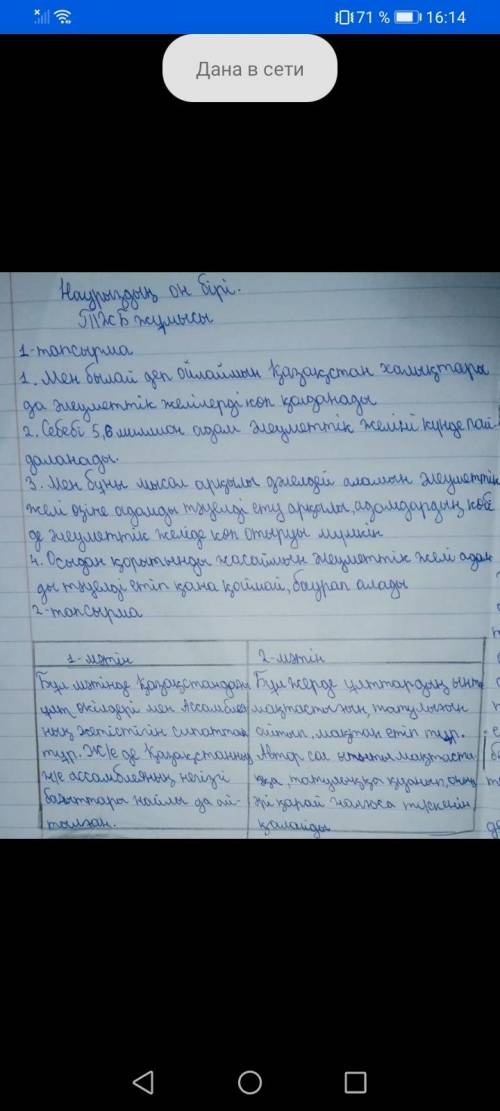 71 % 16:14
Дана в сети
Наурыздың он бірі.
жұмысы
1-тапсырма
1. Мен былай деп ойлаймын Қазақстан халықтары
да әлеуметтік желілерді көп қолданады
2. Себебі 5,8 миллион адам әлеуметтік желіні күнде пай-
даланады.
3. Мен бұны мысал арқылы дәлелдей аламын әлеуметтік
желі өзіне адамды тәуелді ету арқылы, адамдардың көбі
де әлеуметтік желіде көп отыруы мүмкін
4. Осыдан қорытынды жасаймын әлеуметтік желі адам-
ды тәуелді етіп қана қоймай, баурап алады
2-тапсырма
1-мәтін
Бұл мәтінде Қазақстандағы
ұлт өкілдері мен Ассамблея-
ның жетістігін сипаттап
тұр. Және де Қазақстанның
және ассамблеяның негізгі
бағыттары жайлы да ай-
тылған.
2-мәтін
Бұл жерде ұлттардың ынты-
мақтастығын, татулығын
айтып, мақтан етіп тұр.
Автор сол ынтымақтасты-
ққа, татулыққа қуанып, оның
әрі қарай жалғаса түскенін
қалайды